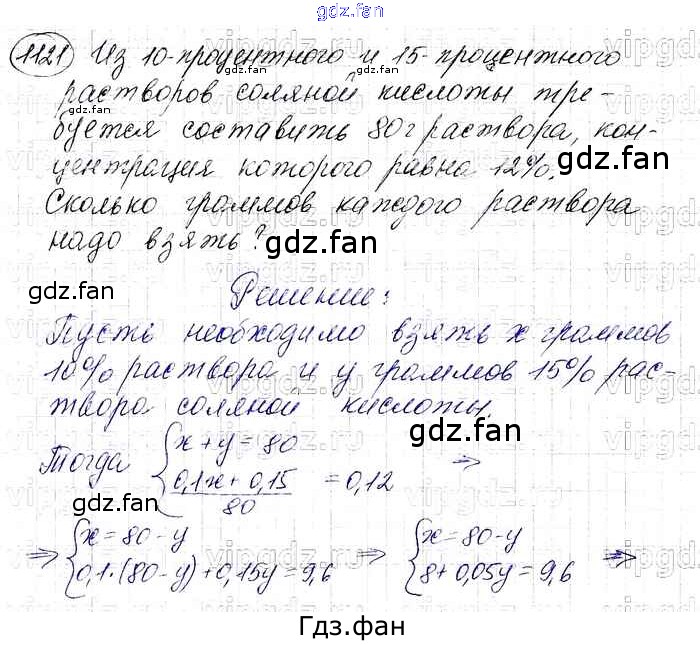 gdz.fan
1121 Из 10-процентного и 15-процентного
растворов соляной кислоты тре-
буется составить 80 г раствора, кон-
центрация которого равна 12%.
Сколько граммов каждого раствора
надо взять?
gdz.fan
gdz.fan
gdz.fan
Решение:
Пусть необходимо взять x граммов
10% раствора и y граммов 15% рас-
твора соляной кислоты.
gdz.fan
Тогда { x + y = 80
(0,1x + 0,15)/80 = 0,12 ⇒
gdz.fan
⇒ { x = 80 - y ⇒ { x = 80 - y
0,1·(80 - y) + 0,15y = 9,6 8 + 0,05y = 9,6 ⇒
Гдз.фан